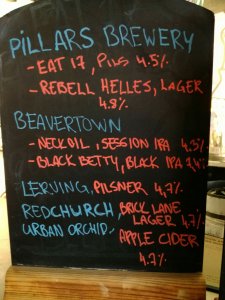 PILLARS BREWERY
- EAT 17, PILS 4.5%
- REBELL HELLES, LAGER
4.8%
BEAVERTOWN
- NECKOIL, SESSION IPA 4.3%
- BLACK BETTY, BLACK IPA 7,4%
LERVING, PILSNER 4,7%
REDCHURCH, BRICK LANE
LAGER 4,7%
URBAN ORCHID, APPLE CIDER
4.7%